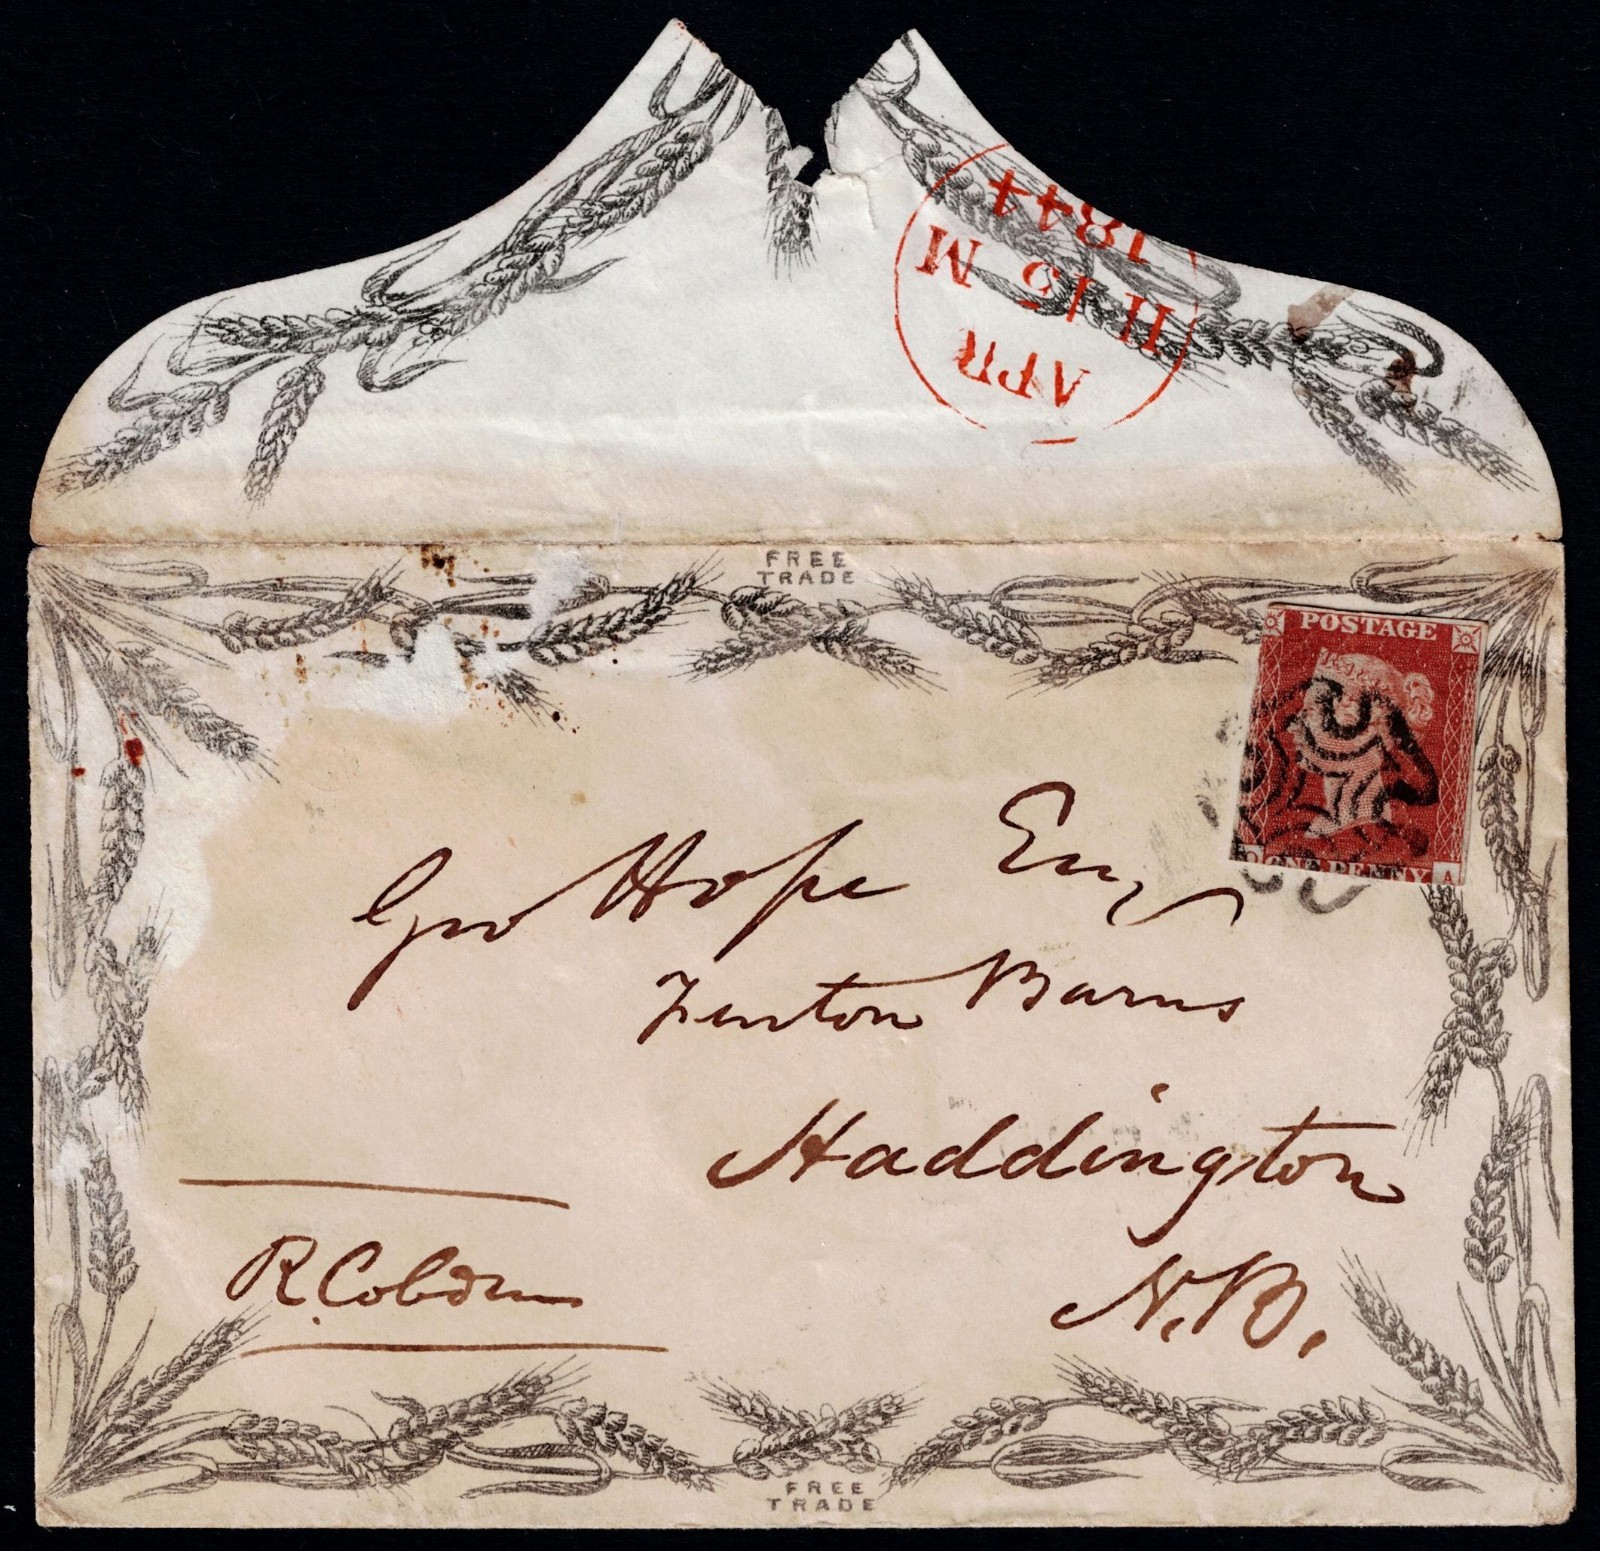 APR
11 15 M
1844
FREE
TRADE
POSTAGE
ONE PENNY
A
Geo Hope Esq
Fenton Barns
Haddington
N.B.
R. Cobden
FREE
TRADE